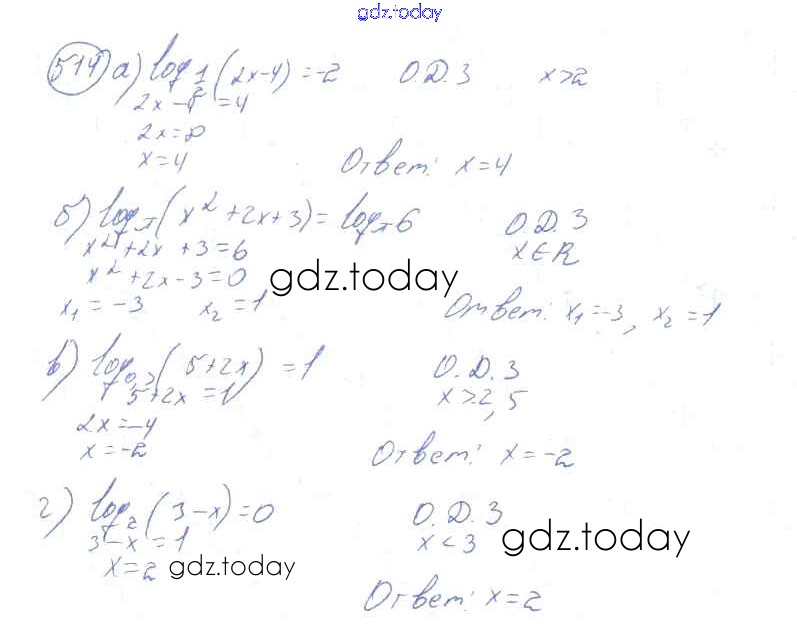 gdz.today
514 а) log 1/2 (2x-4) = -2 О.Д.З x>2
2x - 4 = 4
2x = 8
x = 4 Ответ: x = 4
б) logπ (x² + 2x + 3) = logπ 6 О.Д.З
x² + 2x + 3 = 6 x ∈ R
x² + 2x - 3 = 0 gdz.today
x₁ = -3 x₂ = 1 Ответ: x₁ = -3, x₂ = 1
в) log (5 + 2x) = 1 О.Д.З
5 + 2x = 1 x > 2,5
2x = -4
x = -2 Ответ: x = -2
г) log₂ (3 - x) = 0 О.Д.З
3 - x = 1 x < 3 gdz.today
x = 2 gdz.today
Ответ: x = 2